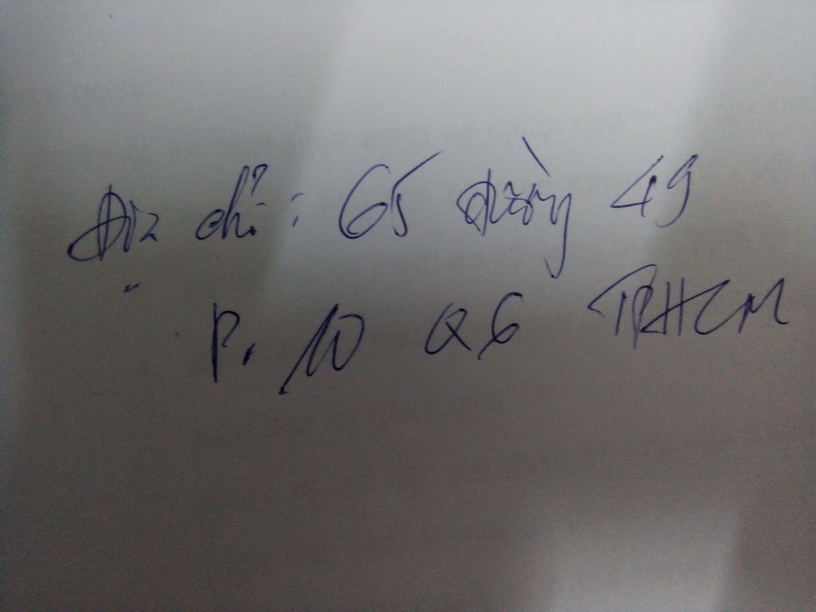 Địa chỉ: 65 đường 49
P. 10 Q6 TPHCM